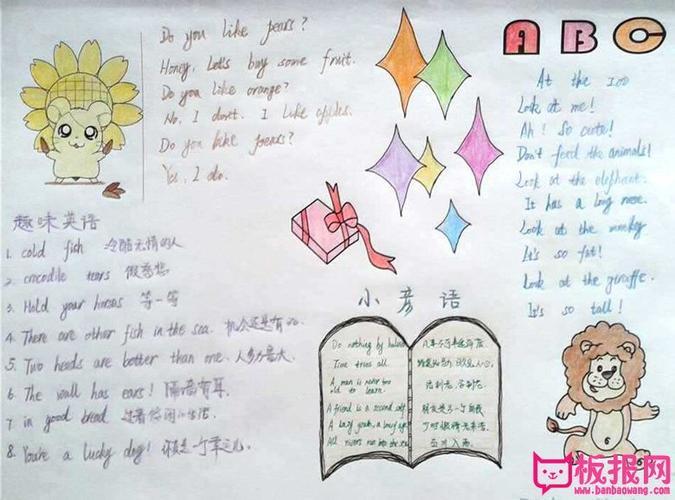 Do you like pears?
Honey, Let's buy some fruit.
Do you like orange?
No, I don't. I like apples.
Do you like pears?
Yes, I do.
ABC
At the zoo
Look at me!
Ah! So cute!
Don't feed the animals!
Look at the elephant.
It has a long nose.
Look at the monkey
It's so fat!
Look at the giraffe.
It's so tall!
趣味英语
1. cold fish 冷酷无情的人
2. crocodile tears 假慈悲
3. Hold your horses 等一等
4. There are other fish in the sea. 机会还是有的.
5. Two heads are better than one. 人多力量大.
6. The wall has ears! 隔墙有耳.
7. in good bread 过着悠闲的生活
8. You're a lucky dog! 你是一个幸运儿.
小彦语
Do nothing by halves
Time tries all
A man is never too
old to learn.
A friend is a second self
All rivers run into the sea
凡事不可半途而废
活到老,学到老.
百川入海.
板报网
www.banbaowang.com